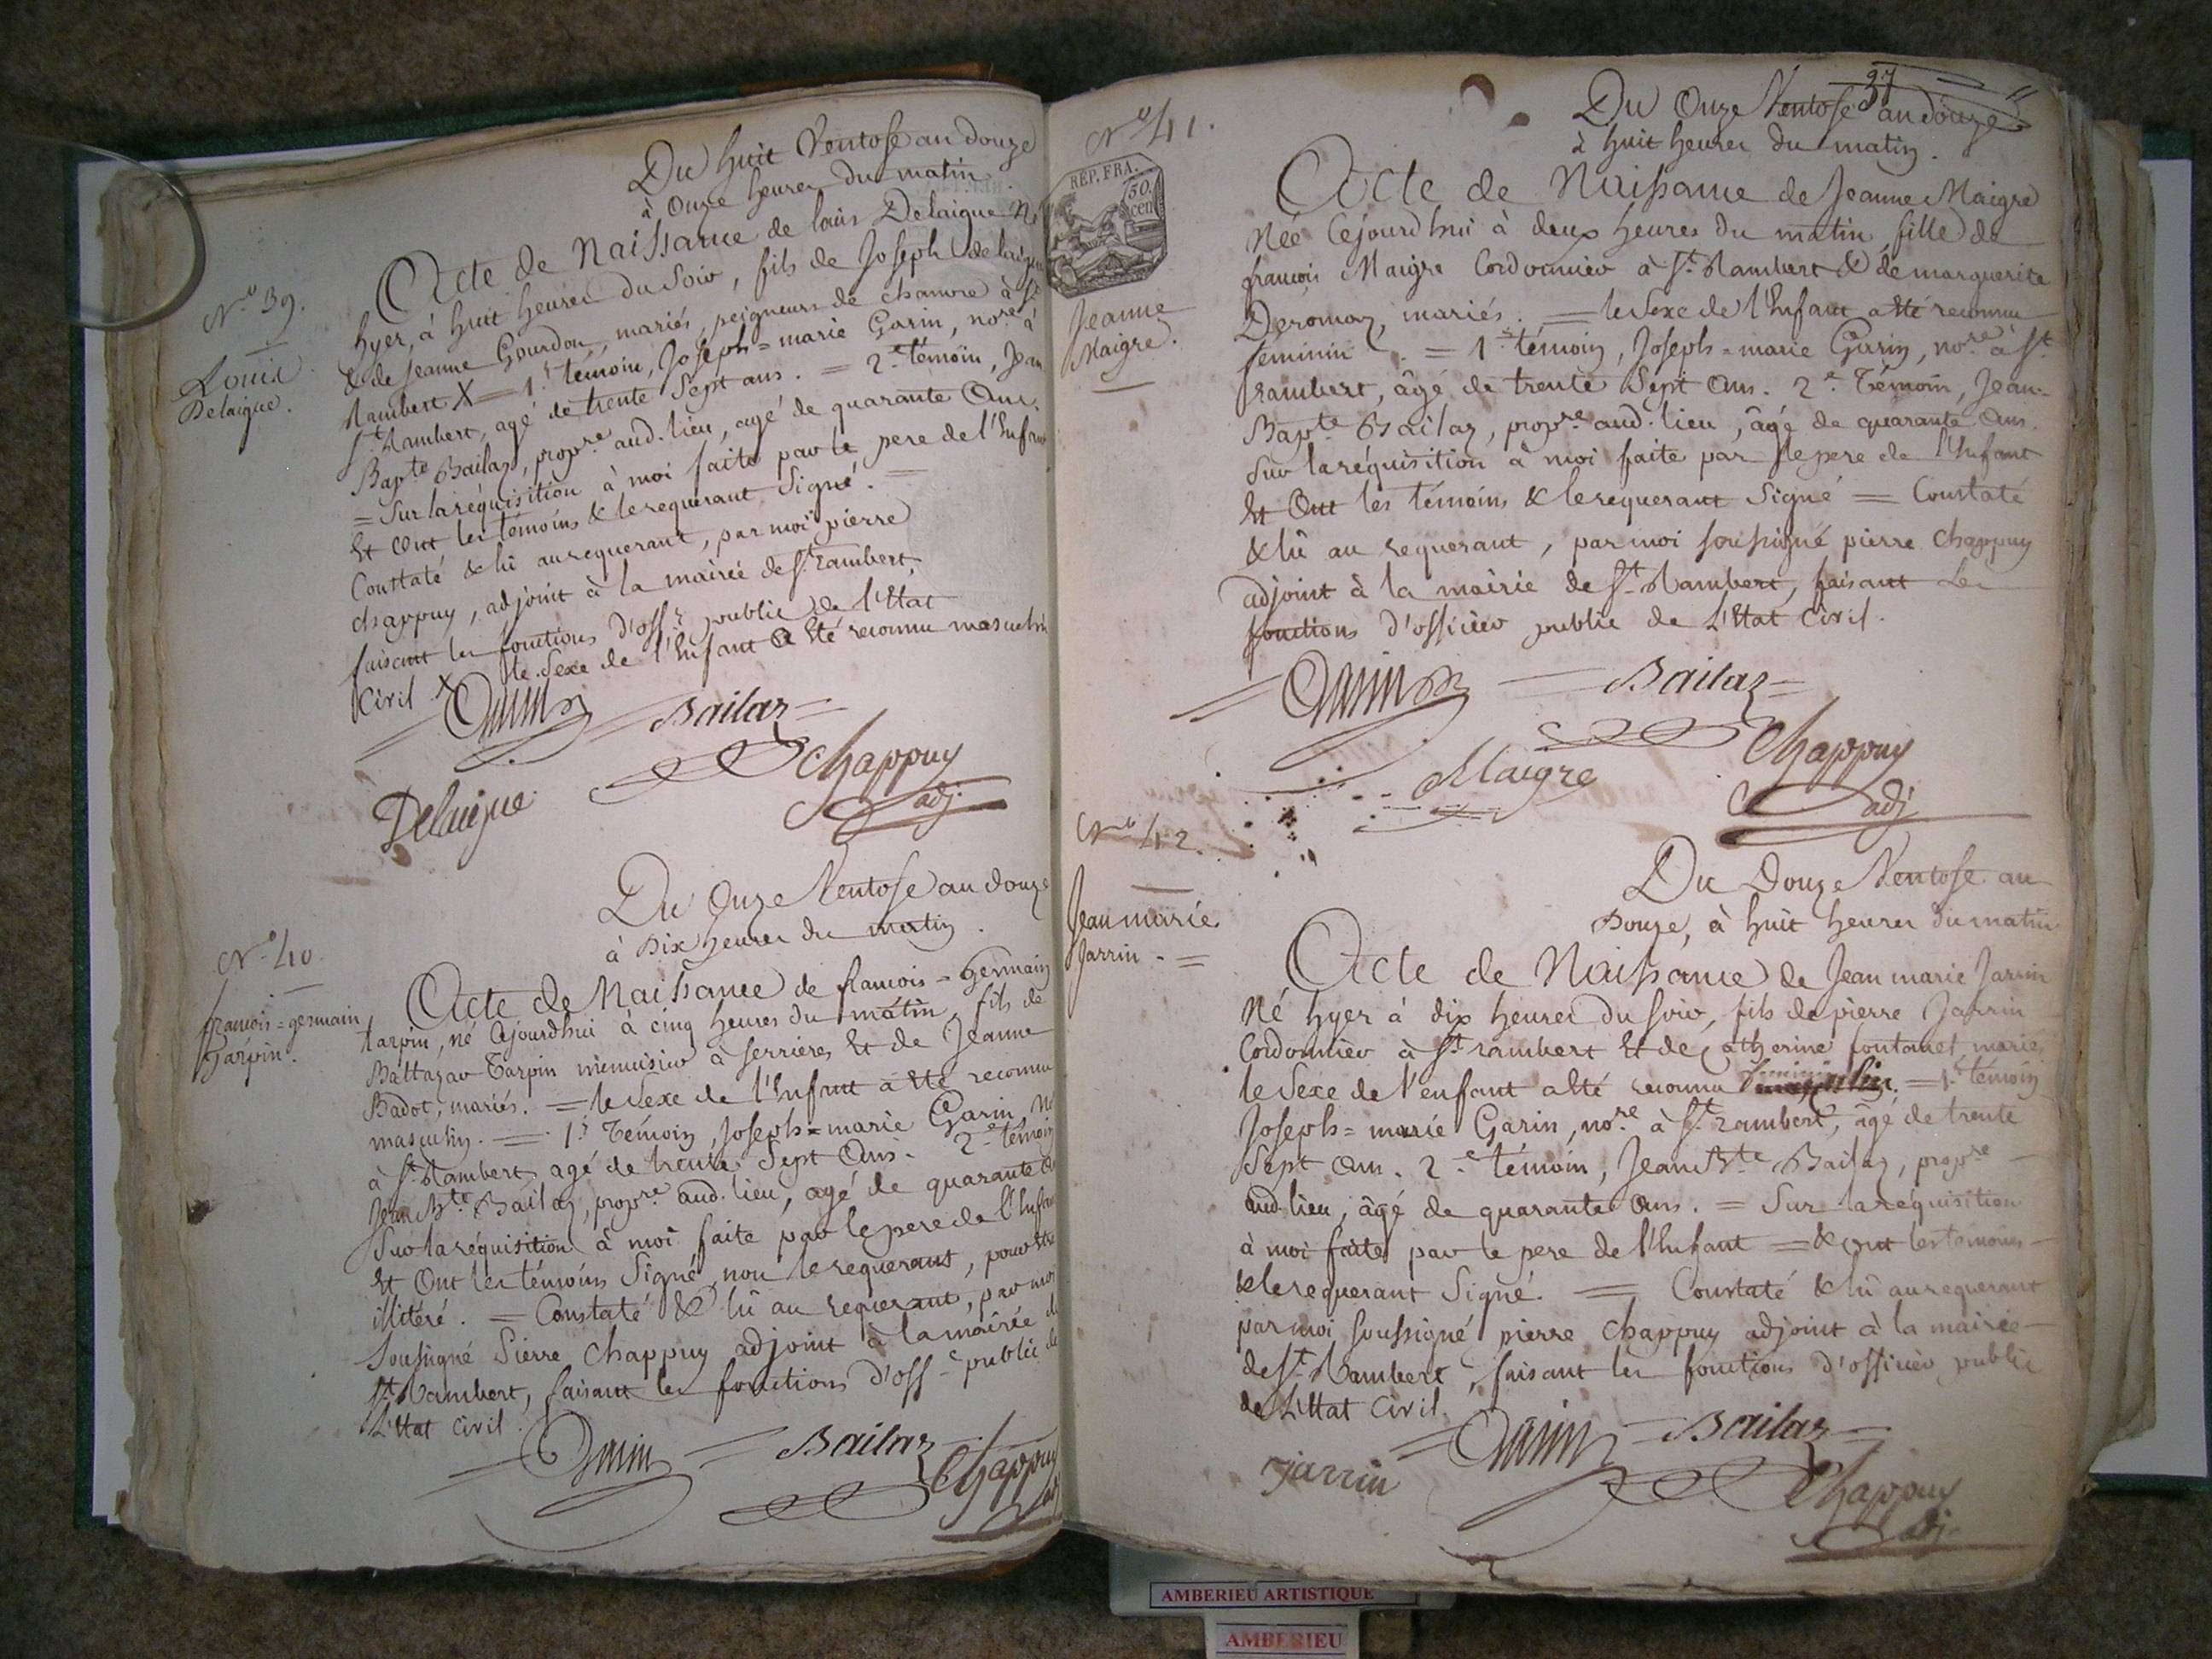 Du huit Ventose an douze
à onze heures du matin.
N.º 39.
Louis
Delaigue.
Acte de Naissance de louis Delaigue Né
hyer, à huit heures du soir, fils de Joseph Delaigue
& de Jeanne Gourdon, mariés, peigneurs de chanvre à St
Rambert X = 1.r témoin, Joseph = marie Garin, no.re à
St. Rambert, agé de trente Sept ans. = 2.e témoin, Jean
Bap.te Bailaz, prop.re aud. lieu, agé de quarante Ans.
= Sur la réquisition à moi faite par le pere de l'Enfant
Et Ont les témoins & le requerant Signé. =
Constaté & lû au requerant, par moi pierre
chappuy, adjoint à la mairie de St. rambert,
faisant les fonctions d'off.r public de l'Etat
Civil. X le Sexe de l'Enfant a Eté reconnu masculin
Garin = Bailaz =
Chappuy
adj.
Delaigue
Du Onze Ventose an douze
à Dix heures du matin.
N.º 40.
francois = germain
Tarpin.
Acte de Naissance de francois = Germain
tarpin, né Cejourdhui à cinq heures du matin, fils de
Baltazar Tarpin menuisier à serrieres Et de Jeanne
Badot, mariés. = le Sexe de l'Enfant a Eté reconnu
masculin. = 1.r Témoin, Joseph = marie Garin, No
à St. Rambert, agé de trente Sept Ans. 2.e témoin
Jean B.te Bailaz, prop.re aud. lieu, agé de quarante
Sur la réquisition à moi faite par le pere de l'Enfant
Et Ont les témoins Signé, non le requerant, pour être
illitéré. = Constaté & lû au requerant, par moi
Soussigné Pierre Chappuy adjoint à la mairie de
St. Rambert, faisant les fonctions d'off.r public de
L'Etat Civil.
Garin = Bailaz =
Chappuy
adj
37
Du Onze Ventose an douze
à huit heures du matin.
N.º 41.
REP. FRA.
50.
cen
Jeanne
Maigre.
Acte de Naissance de Jeanne Maigre
Née Cejourdhui à deux heures du matin, fille de
francois Maigre Cordonnier à St. Rambert & de marguerite
Deromaz, mariés. = le Sexe de l'Enfant a Eté reconnu
feminin. = 1.r témoin, Joseph = marie Garin, no.re à St.
rambert, âgé de trente Sept Ans. 2.e Témoin, Jean =
Bap.te Bailaz, prop.re aud. lieu, âgé de quarante Ans.
Sur la réquisition à moi faite par le pere de l'Enfant
Et Ont les témoins & le requerant Signé = Constaté
& lû au requerant, par moi soussigné pierre chappuy
adjoint à la mairie de St. Rambert, faisant les
fonctions d'officier public de L'Etat Civil.
Garin = Bailaz =
Maigre
Chappuy
adj
Du Douze Ventose an
Douze, à huit heures du matin
N.º 42.
Jean marie
Jarrin. =
Acte de Naissance de Jean marie Jarrin
Né hyer à dix heures du soir, fils de pierre Jarrin
Cordonnier à St. rambert Et de Catherine fontanel, mariés,
le Sexe de l'enfant a Eté reconnu masculin. = 1.r témoin
Joseph = marie Garin, no.re à St. rambert, âgé de trente
Sept Ans. 2.e témoin, Jean B.te Bailaz, prop.re
aud. lieu, âgé de quarante Ans. = Sur la réquisition
à moi faite par le pere de l'Enfant = & Ont les témoins
& le requerant Signé. = Constaté & lû au requerant
par moi soussigné pierre Chappuy adjoint à la mairie
de St. Rambert, faisant les fonctions d'officier public
de L'Etat Civil.
Jarrin
Garin = Bailaz =
Chappuy
adj.
AMBERIEU ARTISTIQUE
AMBERIEU